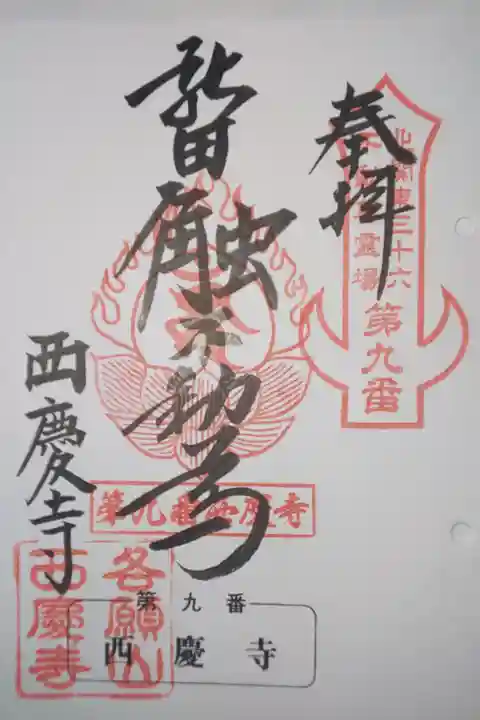 奉拝
北関東三十六
不動尊霊場
第九番
新田触不動尊
西慶寺
第九番西慶寺
各願山
西慶寺
第九番
西慶寺